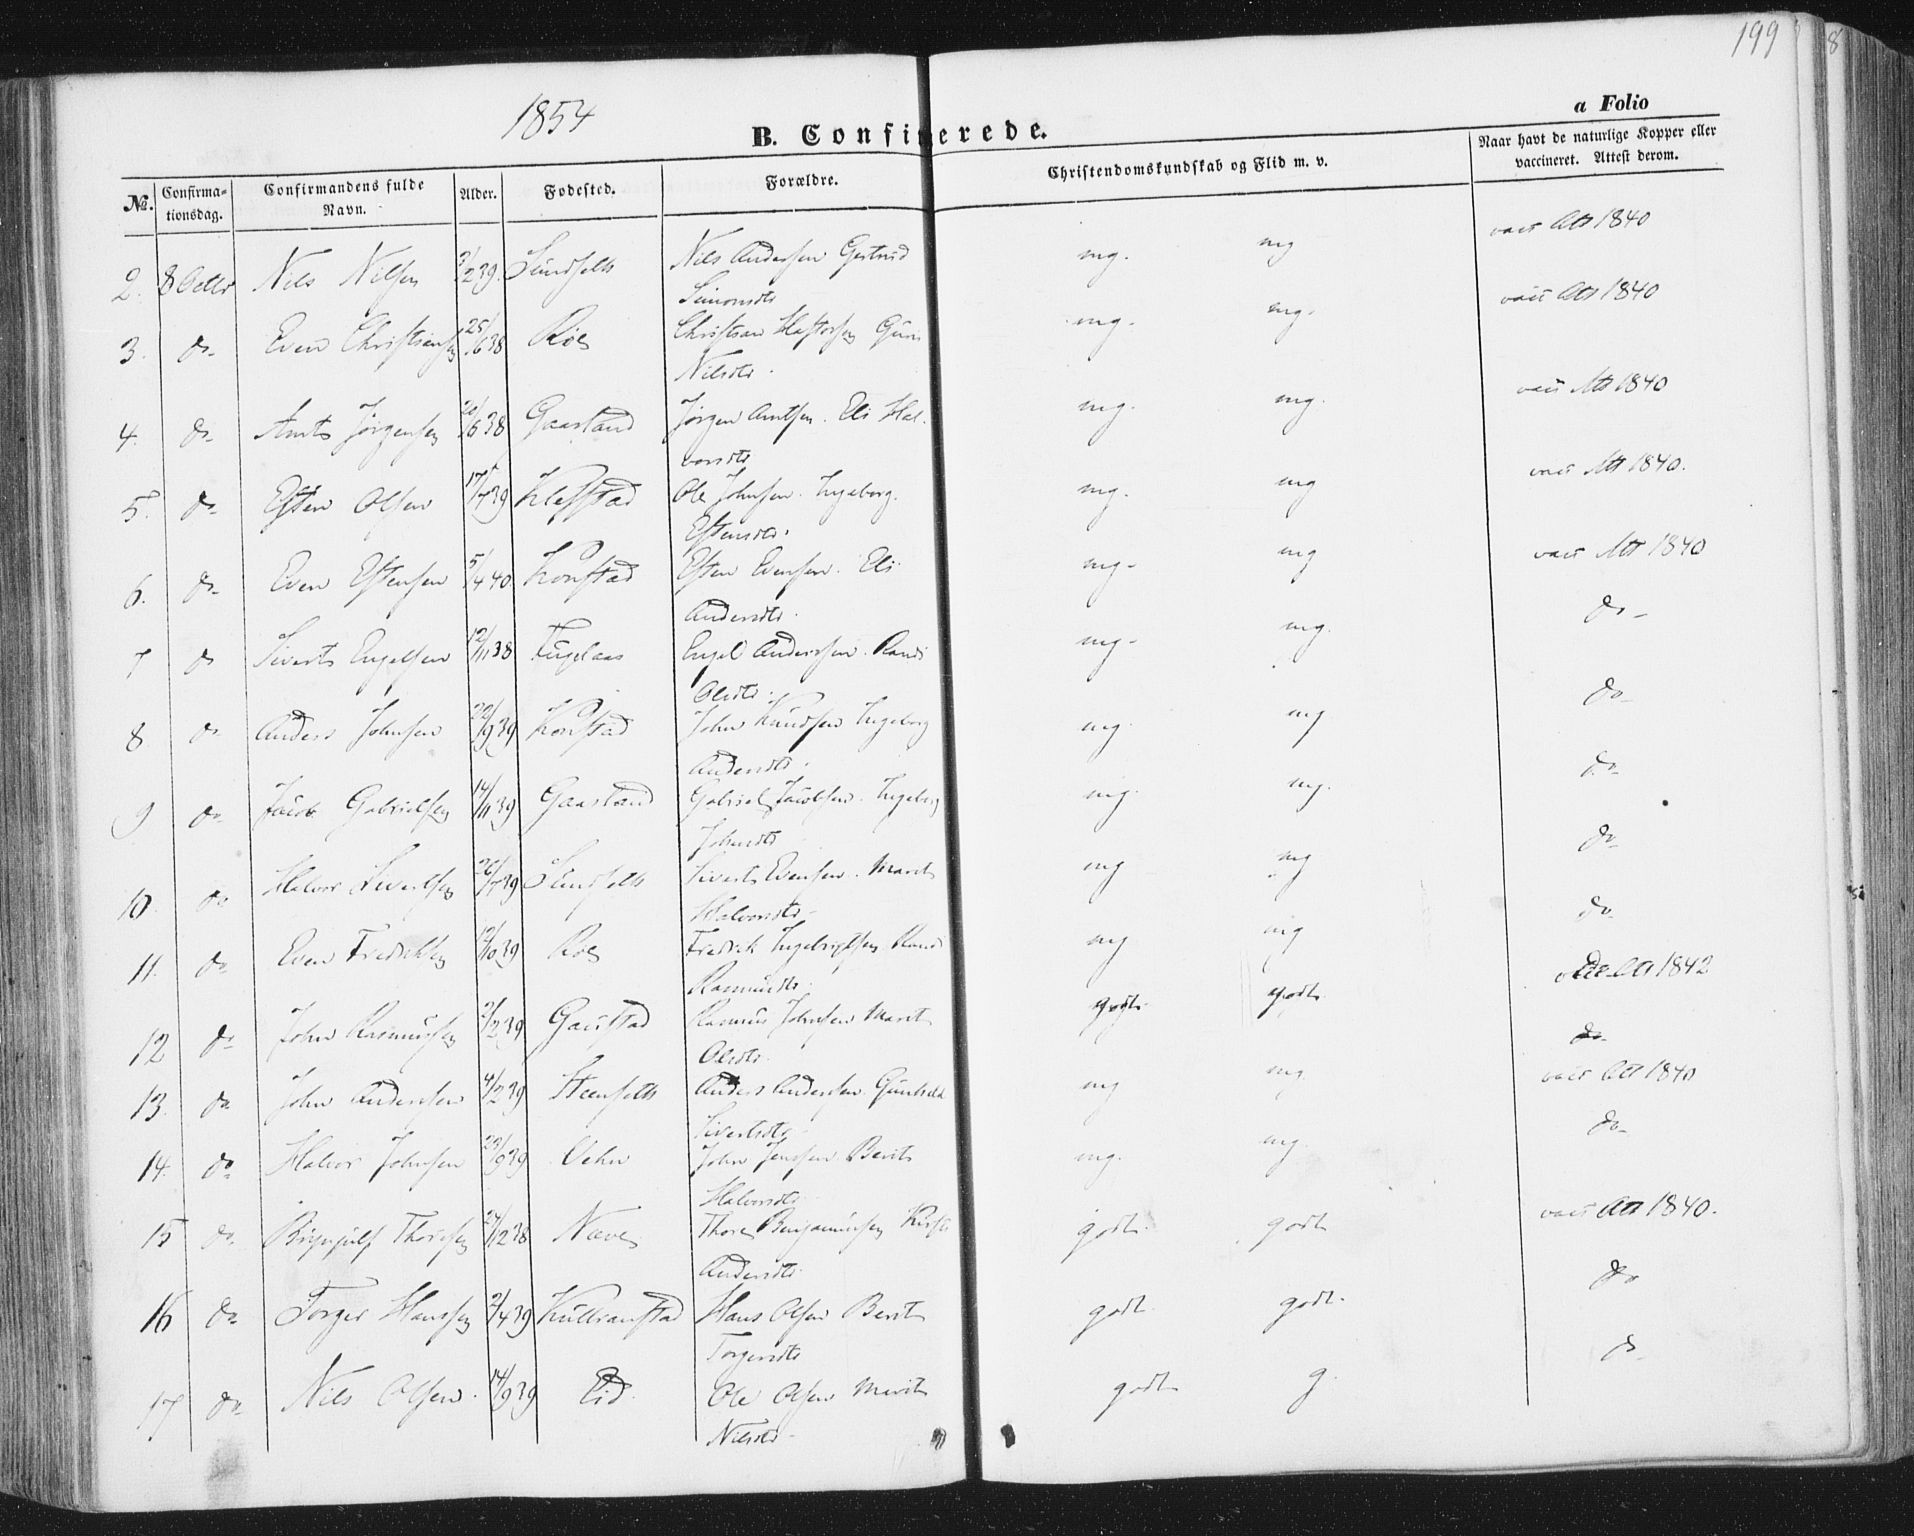 199
8
1854
a Folio
B. Confirmerede.
No. Confirma-tionsdag. Confirmandens fulde Navn. Alder. Fødested. Forældre. Christendomskundskab og Flid m. v. Naar havt de naturlige Kopper eller vaccineret. Attest derom.
2. 8 Octbr Nils Nilsen 3/2 39. Sundseth Nils Andersen Gertrud mg. mg vacc Att 1840
Simonsdtr
3. do Even Christiansen 25/6 38 Røe Christian Guri mg. mg. vacc Att 1840
Nilsdtr.
4. do Arnt Jørgensen 20/6 38 Gaasland Jørgen Arntsen. Eli Hal- mg. mg. vacc Att 1840
vorsdtr
5. do Esten Olsen 17/7 39 Klefstad Ole Johnsen. Ingeborg. mg. mg vacc Att 1840.
Estensdtr.
6. do Even Estensen 5/4 40 Konstad Esten Evensen. Eli mg- mg vacc Att 1840
Andersdtr.
7 do Sivert Engelsen 12/11 38 Fuglaas Engel Andersen. Randi mg- mg. do-
Olsdtr.
8 do Anders Johnsen 22/9 39 Konstad John Knudsen Ingeborg mg. mg do-
Andersdtr.
9 do Jacob Gabrielsen 14/11 39 Gaasland Gabriel Jacobsen. Ingeborg mg. mg. do-
Johnsdtr
10. do Halvor Sivertsen 26/7 39 Sundseth Sivert Evensen. Marit mg mg do-
Halvorsdtr-
11. do Even Fredriksen 12/10 39 Røe Fredrik Ingebrigtsen Randi mg mg do-
Rasmusdtr.
12 do John Rasmussen 2/2 39 Gaustad Rasmus Johnsen Marit godt. godt Att 1842
Olsdtr. do-
13. do John Andersen 4/2 39 Steenseth Anders Andersen. Gunhild mg mg vacc Att 1840
Sivertsdtr-
14. do Halvor Johnsen 23/9 39 Vehn John Jenssen Berit mg. mg. do-
Halvorsdtr
15 do Brynjulf Thoresen 24/12 38 Næve Thore Benjaminsen Kirsti godt. godt vacc Att 1840.
Andersdtr.
16 do Torger Hanssen 2/4 39 Hans Olsen Berit godt. godt. do
Torgersdtr
17 do Nils Olsen. 14/9 39 Eid. Ole Olsen Marit godt g. do
Nilsdtr-